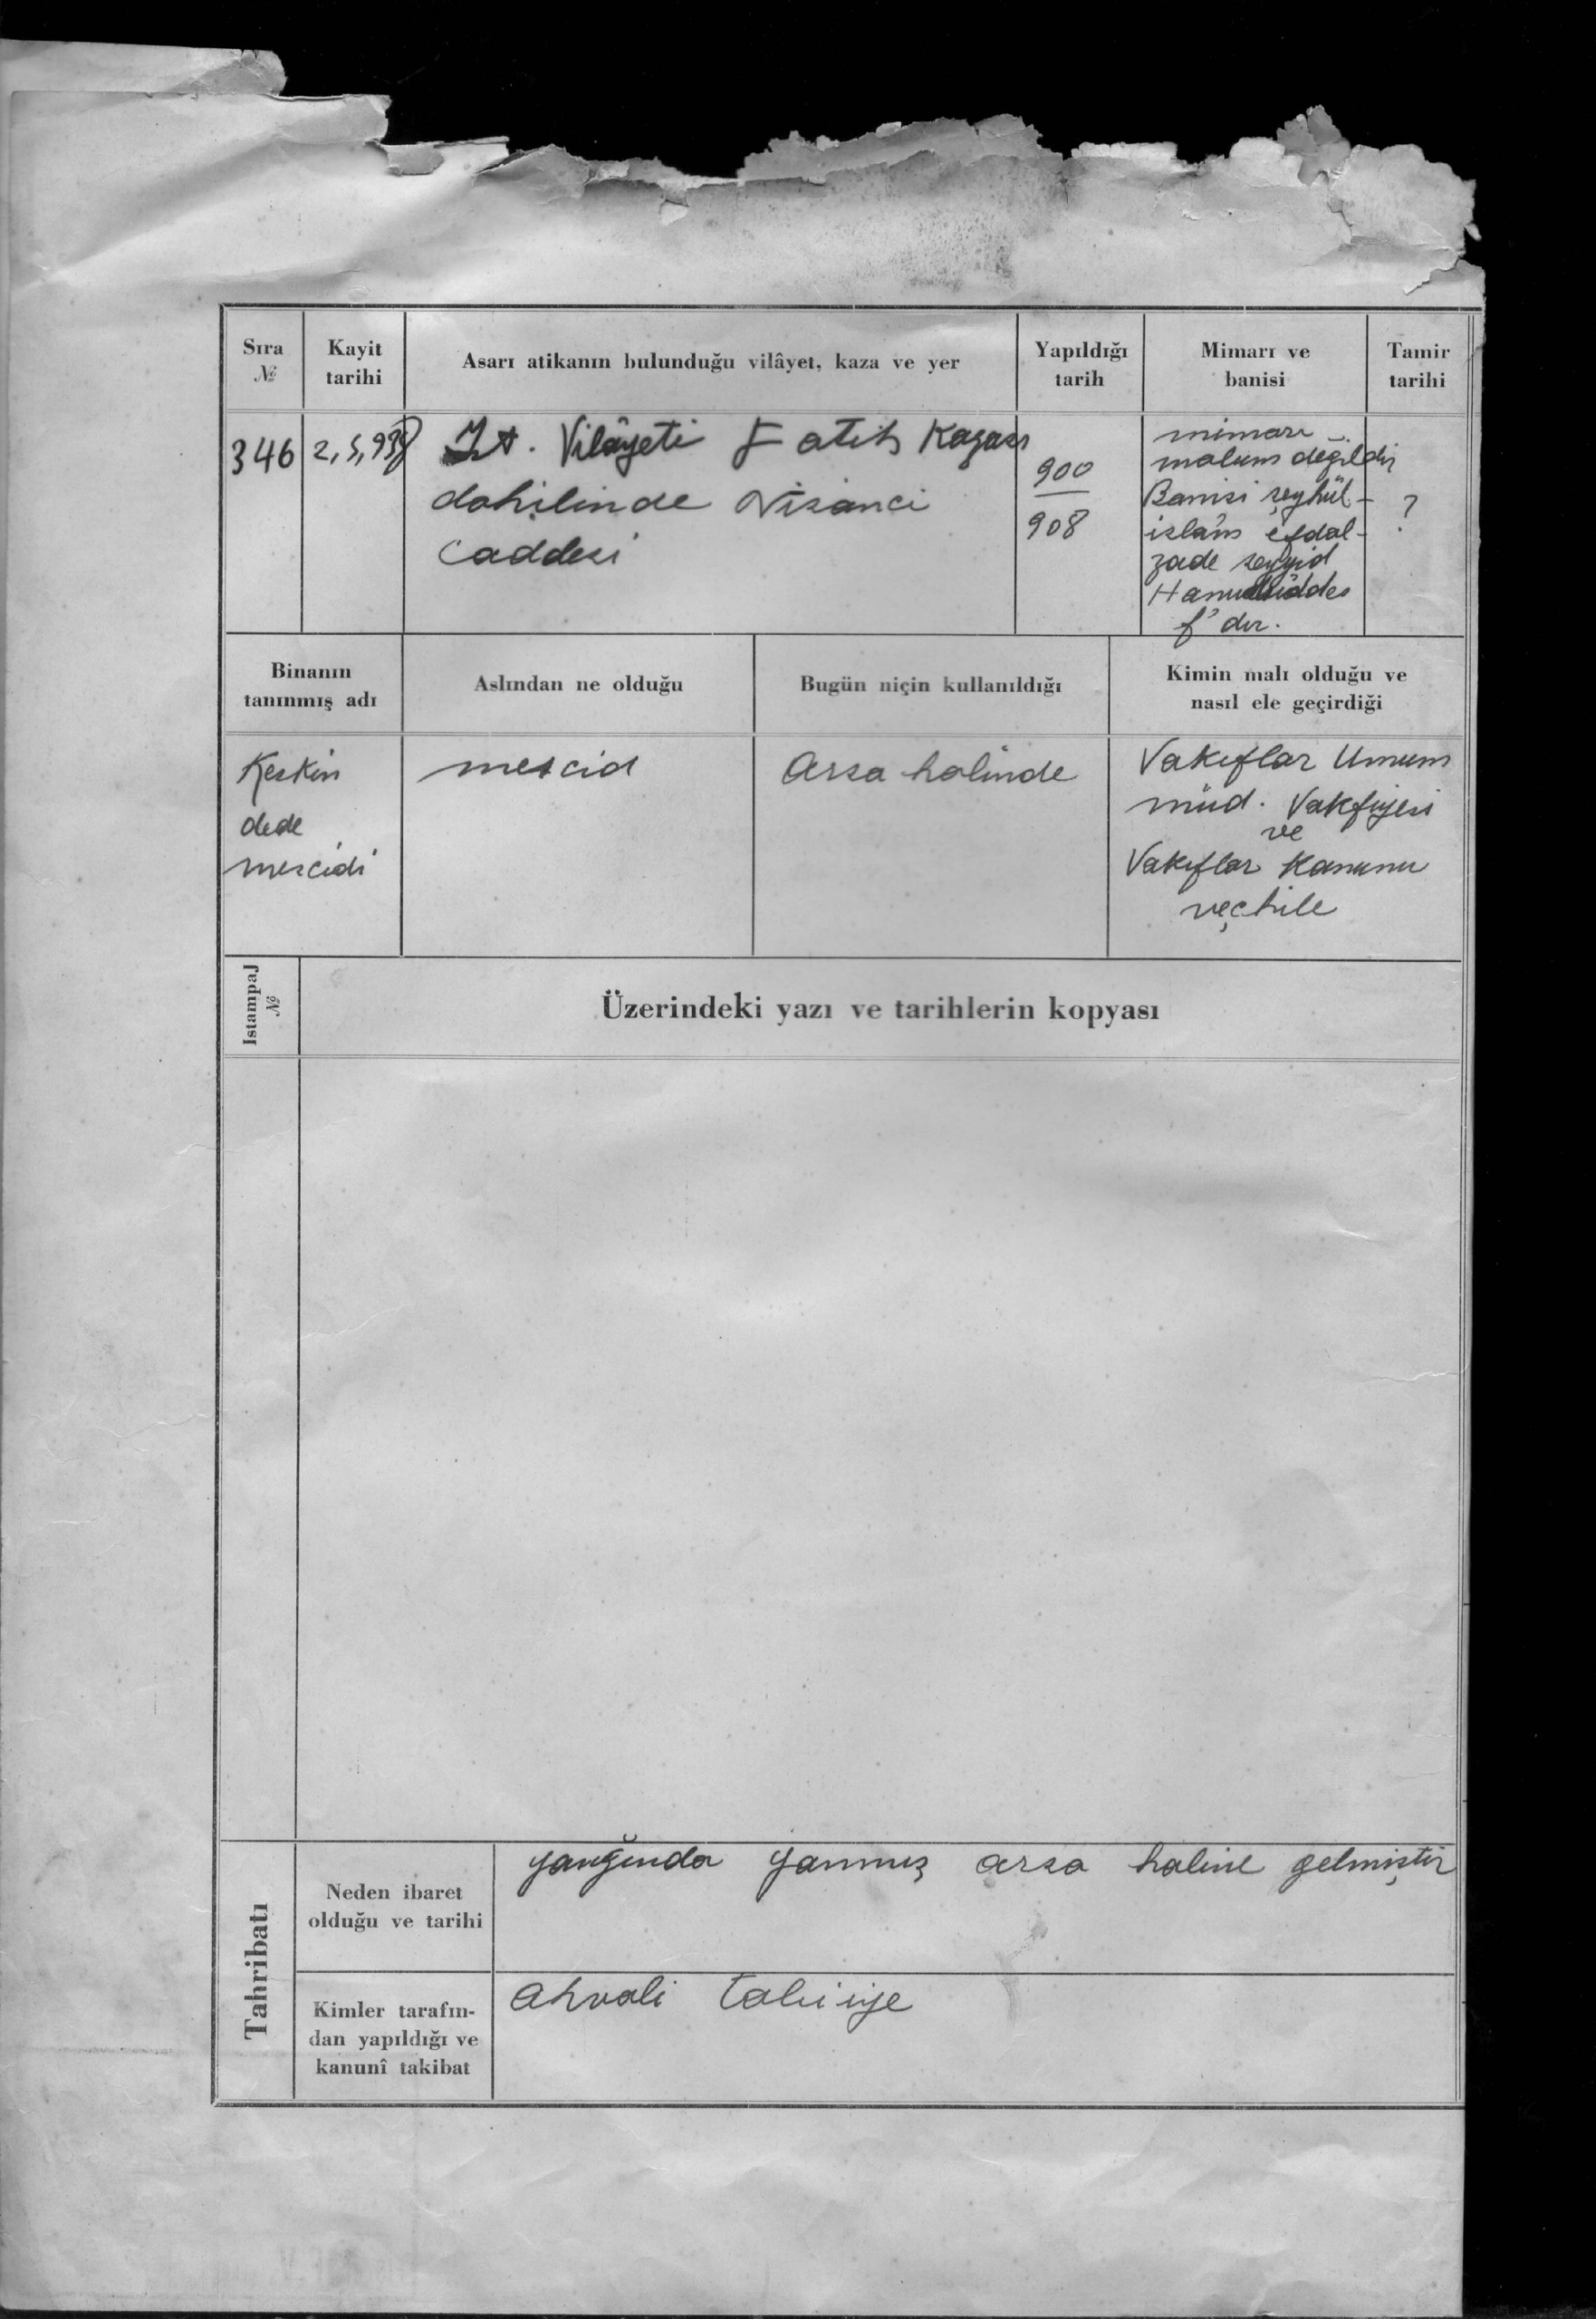 Sıra
№
Kayit
tarihi
Asarı atikanın bulunduğu vilâyet, kaza ve yer
Yapıldığı
tarih
Mimarı ve
banisi
Tamir
tarihi
346
2,5,938
İst. Vilâyeti Fatih Kazası
dahilinde Nisanci
Caddesi
900
908
mimarı
malum değildir
Banisi şeyhül-
islâm efdal-
zade seyyid
f' dır.
?
Binanın
tanınmış adı
Aslından ne olduğu
Bugün niçin kullanıldığı
Kimin malı olduğu ve
nasıl ele geçirdiği
Keskin
dede
mescidi
mescid
Arsa halinde
Vakıflar Umum
müd. Vakfiyesi
ve
Vakıflar Kanunu
veçhile
Istampaj
№
Üzerindeki yazı ve tarihlerin kopyası
Tahribatı
Neden ibaret
olduğu ve tarihi
yanğında yanmış arsa haline gelmiştir
Kimler tarafın-
dan yapıldığı ve
kanunî takibat
ahvali tabiiye